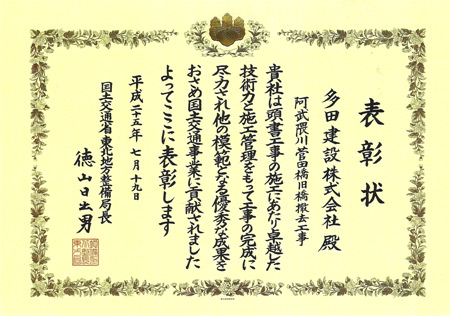 表彰状
多田建設株式会社 殿
阿武隈川菅田橋旧橋撤去工事
貴社は頭書工事の施工にあたり卓越した
技術力と施工管理をもって工事の完成に
尽力され他の模範となる優秀な成果を
おさめ国土交通事業に貢献されました
よってここに表彰します
平成二十五年 七月十九日
国土交通省 東北地方整備局長
徳山日出男